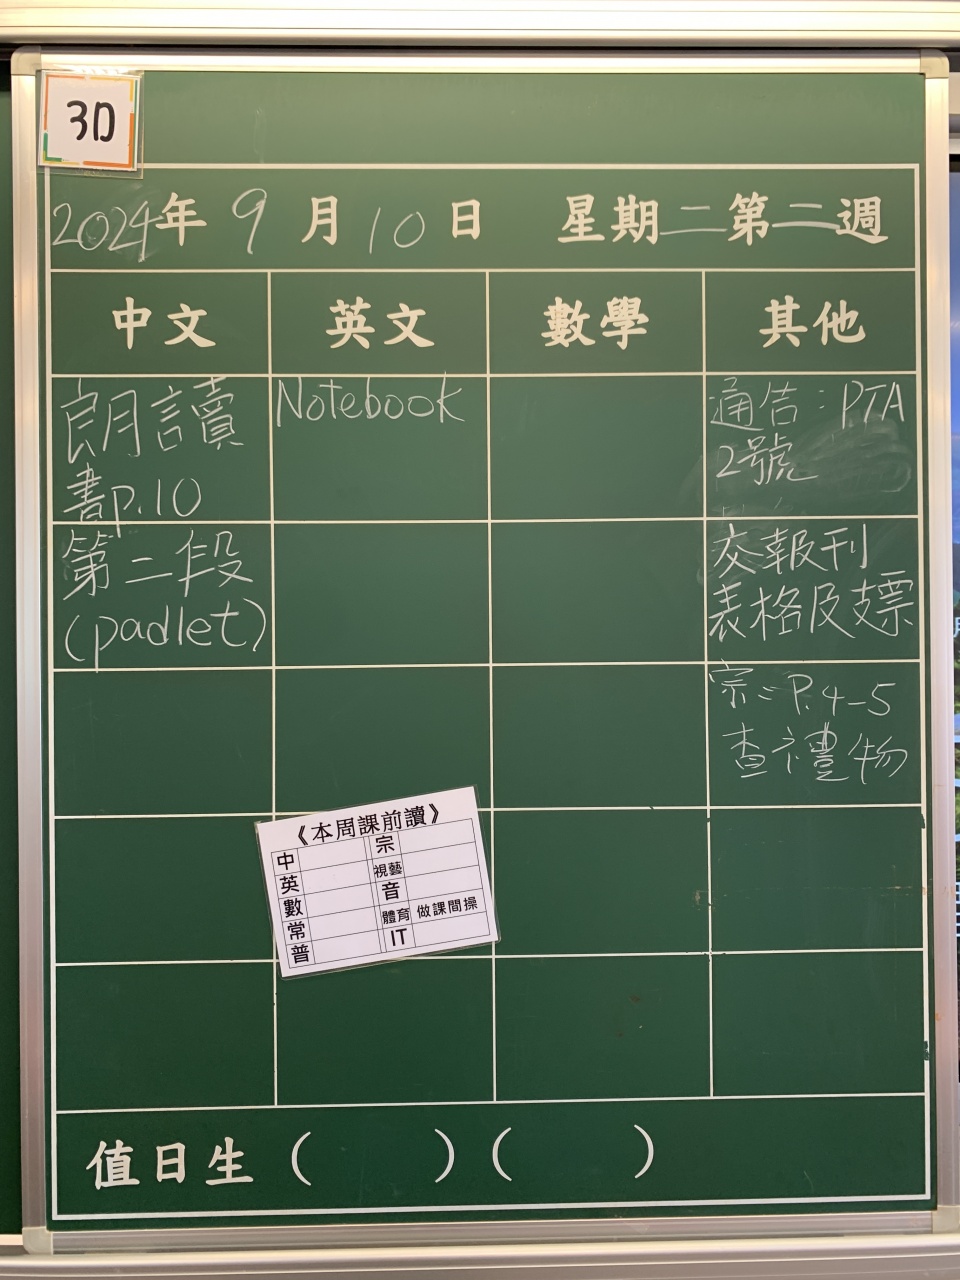 3D
2024年 9月 10日 星期二 第二週
中文 英文 數學 其他
朗讀
書p.10
第二段
(padlet)
Notebook
通告：PTA
2號
交報刊
表格及支票
宗：P.4-5
查禮物
《本周課前讀》
中 宗
英 視藝
數 音
常 體育 做課間操
普 IT
值日生（ ）（ ）